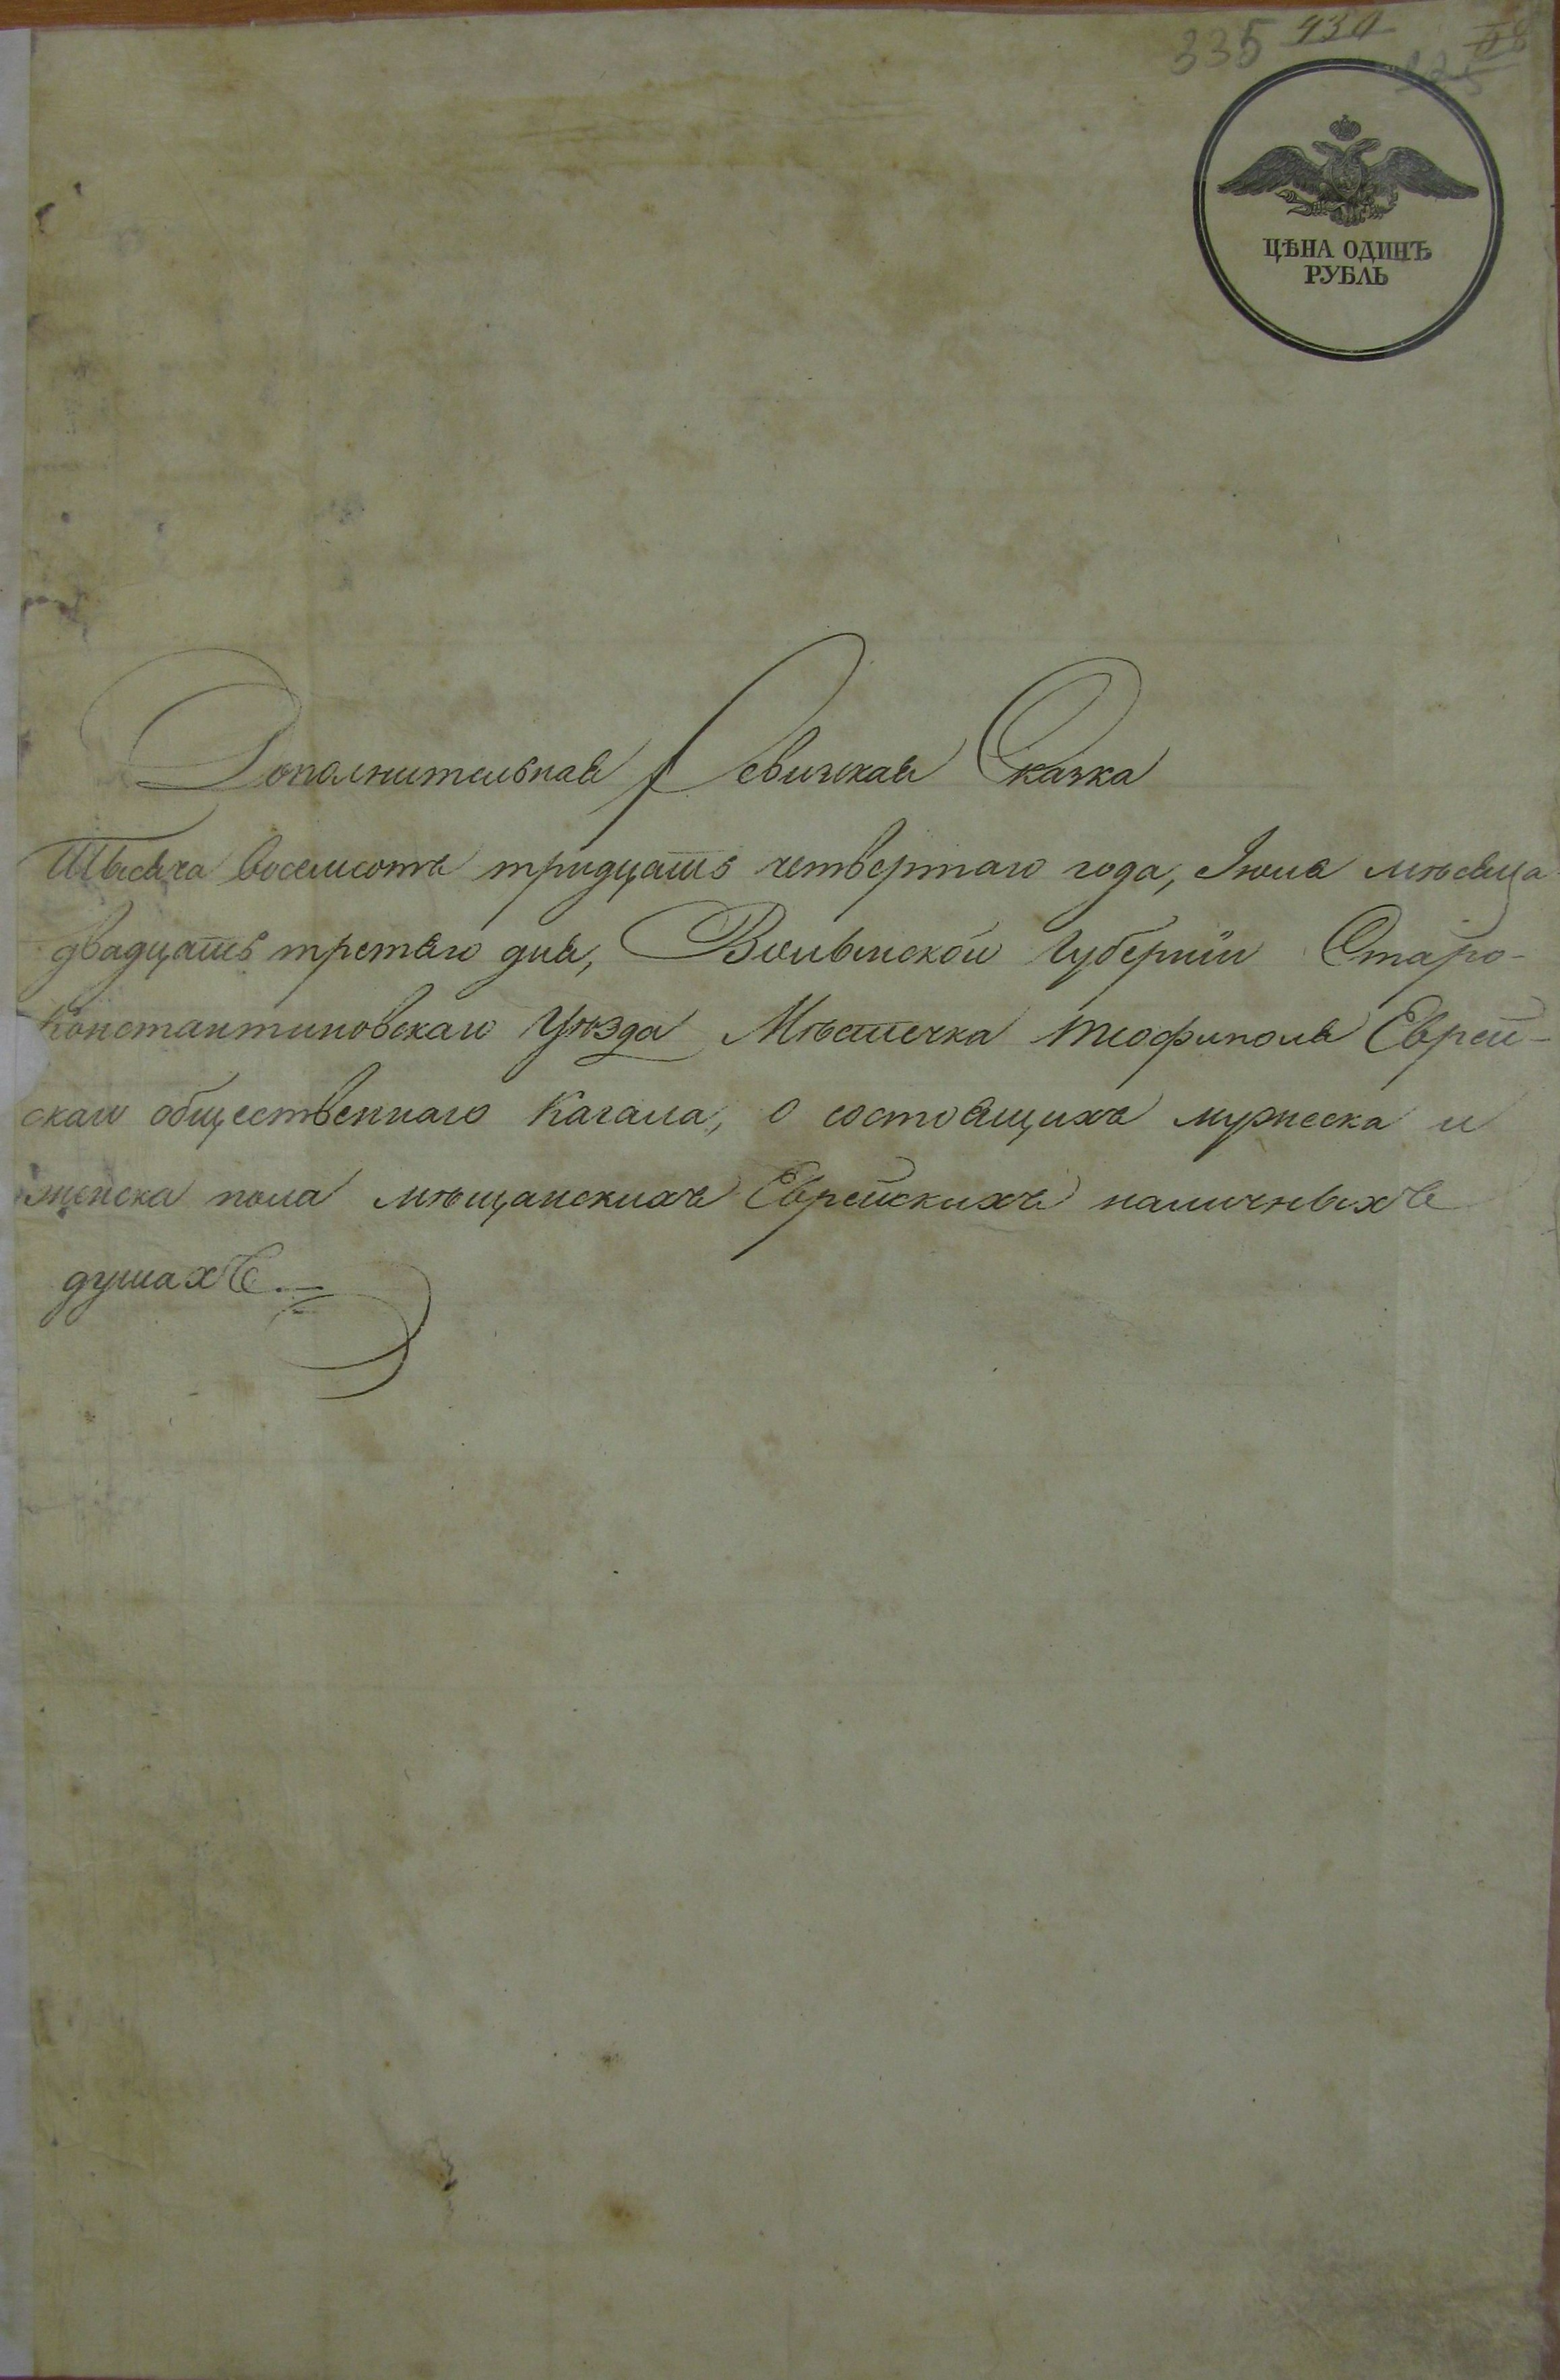 335 930
ЦѢНА ОДИНЪ
РУБЛЬ
Дополнительная Ревизкая Сказка
Тысяча восемсотъ тридцать четвертаго года, Іюля мѣсяца
двадцать третяго дня, Волынской Губерніи Старо-
Константиновскаго Уѣзда Мѣстечка Теофиполя Еврей-
скаго общественнаго Кагала, о состоящихъ мужеска и
женска пола мѣщанскихъ Еврейскихъ наличныхъ
душахъ.